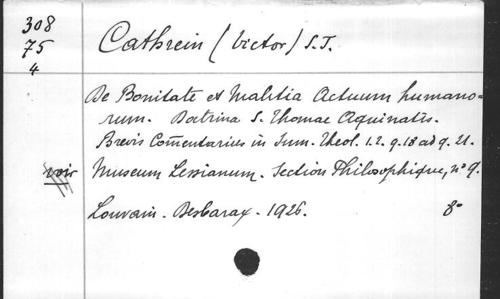 308
75
4
Cathrein (Victor) S.J.
De Bonitate et Malitia Actuum humano-
rum. Doctrina S. Thomae Aquinatis.
Brevis Comentarius in Sum. Theol. 1.2. q.18 ad q. 21.
voir Museum Lessianum. Section Philosophique, n° 9.
Louvain - Desbarax - 1926. 8°